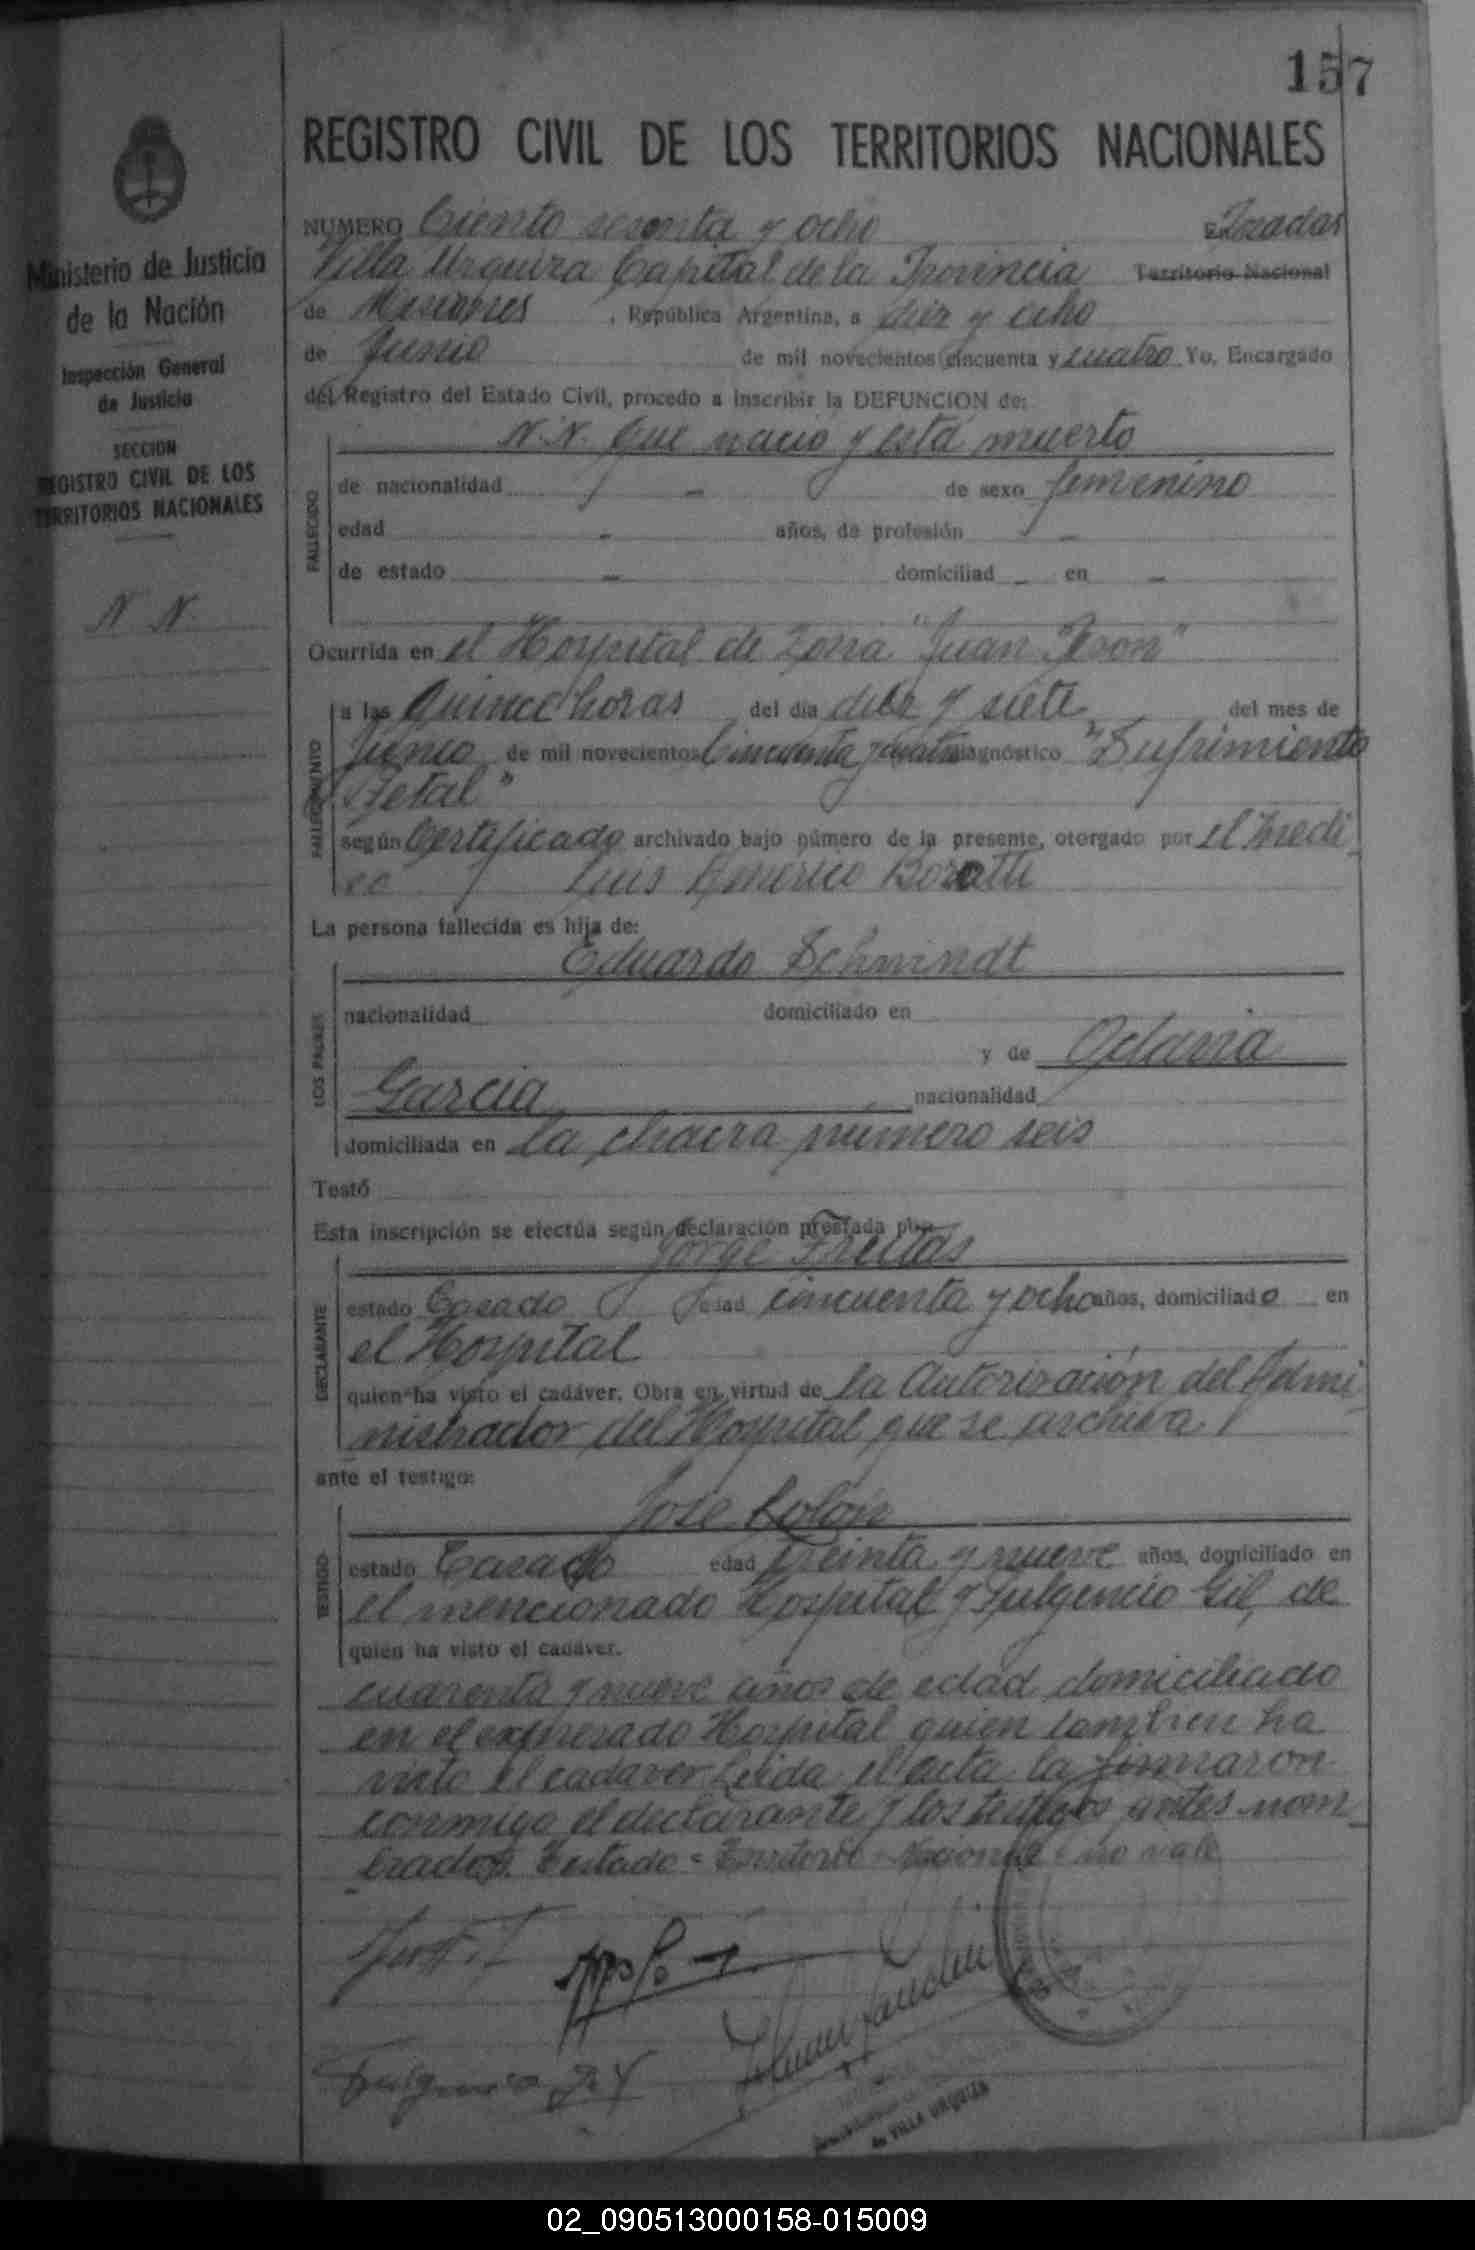 157
REGISTRO CIVIL DE LOS TERRITORIOS NACIONALES
Ministerio de Justicia
de la Nación
Inspección General
de Justicia
SECCION
REGISTRO CIVIL DE LOS
TERRITORIOS NACIONALES
N. N.
NUMERO Ciento sesenta y ocho Posadas
Villa Urquiza Capital de la Provincia Territorio Nacional
de Misiones, República Argentina, a diez y ocho
de Junio de mil novecientos cincuenta y cuatro Yo, Encargado
del Registro del Estado Civil, procedo a inscribir la DEFUNCION de:
N.N. que nació y está muerto
FALLECIDO
de nacionalidad - de sexo femenino
edad - años, de profesión -
de estado - domiciliad - en -
Ocurrida en el Hospital de Zona "Juan Peron"
FALLECIMIENTO
a las quince horas del día diez y siete del mes de
Junio de mil novecientos Cincuenta y cuatro diagnóstico "Sufrimiento
Fetal"
según Certificado archivado bajo número de la presente, otorgado por el Medi
co Luis Americo Boratti
La persona fallecida es hija de:
Eduardo Schmindt
LOS PADRES
nacionalidad domiciliado en
y de Octavia
Garcia nacionalidad
domiciliada en la chacra numero seis
Testó
Esta inscripción se efectúa según declaración prestada por
Jorge Freitas
DECLARANTE
estado Casado edad cincuenta y ocho años, domiciliado en
el Hospital
quien ha visto el cadáver. Obra en virtud de la Autorización del Admi
nistrador del Hospital que se archiva
ante el testigo:
José Rolón
TESTIGO
estado Casado edad treinta y nueve años, domiciliado en
el mencionado Hospital y Fulgencio Gil, de
quien ha visto el cadáver.
cuarenta y nueve años de edad domiciliado
en el expresado Hospital quien tambien ha
visto el cadaver Leida el acta la firmaron
conmigo el declarante y los testigos antes nom
brados. Testado = Territorio Nacional no vale
de VILLA URQUIZA
02_090513000158-015009